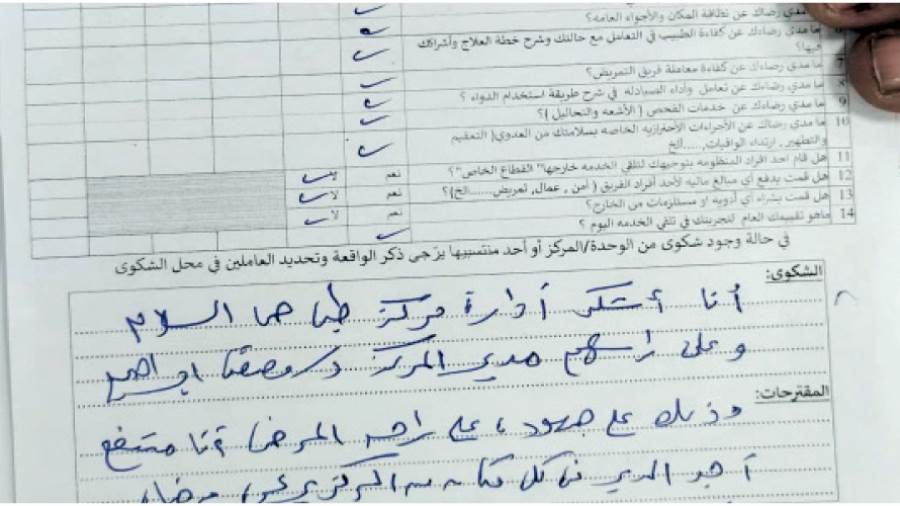 ما مدي رضاك عن نظافة المكان والأجواء العامه؟
ما مدي رضاءك عن كفاءة الطبيب في التعامل مع حالتك وشرح خطة العلاج وأشراكك فيها؟
ما مدي رضاءك عن كفاءة معاملة فريق التمريض؟
8 ما مدي رضاءك عن تعامل وأداء الصيادله في شرح طريقة استخدام الدواء ؟
9 ما مدي رضاءك عن خدمات الفحص ( الأشعه والتحاليل )؟
10 ما مدي رضاك عن الأجراءات الأحترازيه الخاصه بسلامتك من العدوي( التعقيم والتطهير , ارتداء الواقيات,.....الخ
11 هل قام احد افراد المنظومه بتوجيهك لتلقي الخدمه خارجها" القطاع الخاص"؟ نعم
12 هل قمت بدفع أي مبالغ ماليه لأحد أفراد الفريق ( أمن , عمال, تمريض......الخ)؟ نعم لا
13 هل قمت بشراء أي أدويه او مستلزمات من الخارج؟ نعم لا
14 ماهو تقييمك العام لتجربتك في تلقي الخدمه اليوم ؟
في حالة وجود شكوى من الوحدة/المركز أو أحد منتسبيها يرّجى ذكر الواقعة وتحديد العاملين في محل الشكوى
الشكوى:
أنا أشكر أدارة مركز السلام
وعلى راسهم مدير المركز
المقترحات:
وذلك على جهود على المرضا
المدير كل